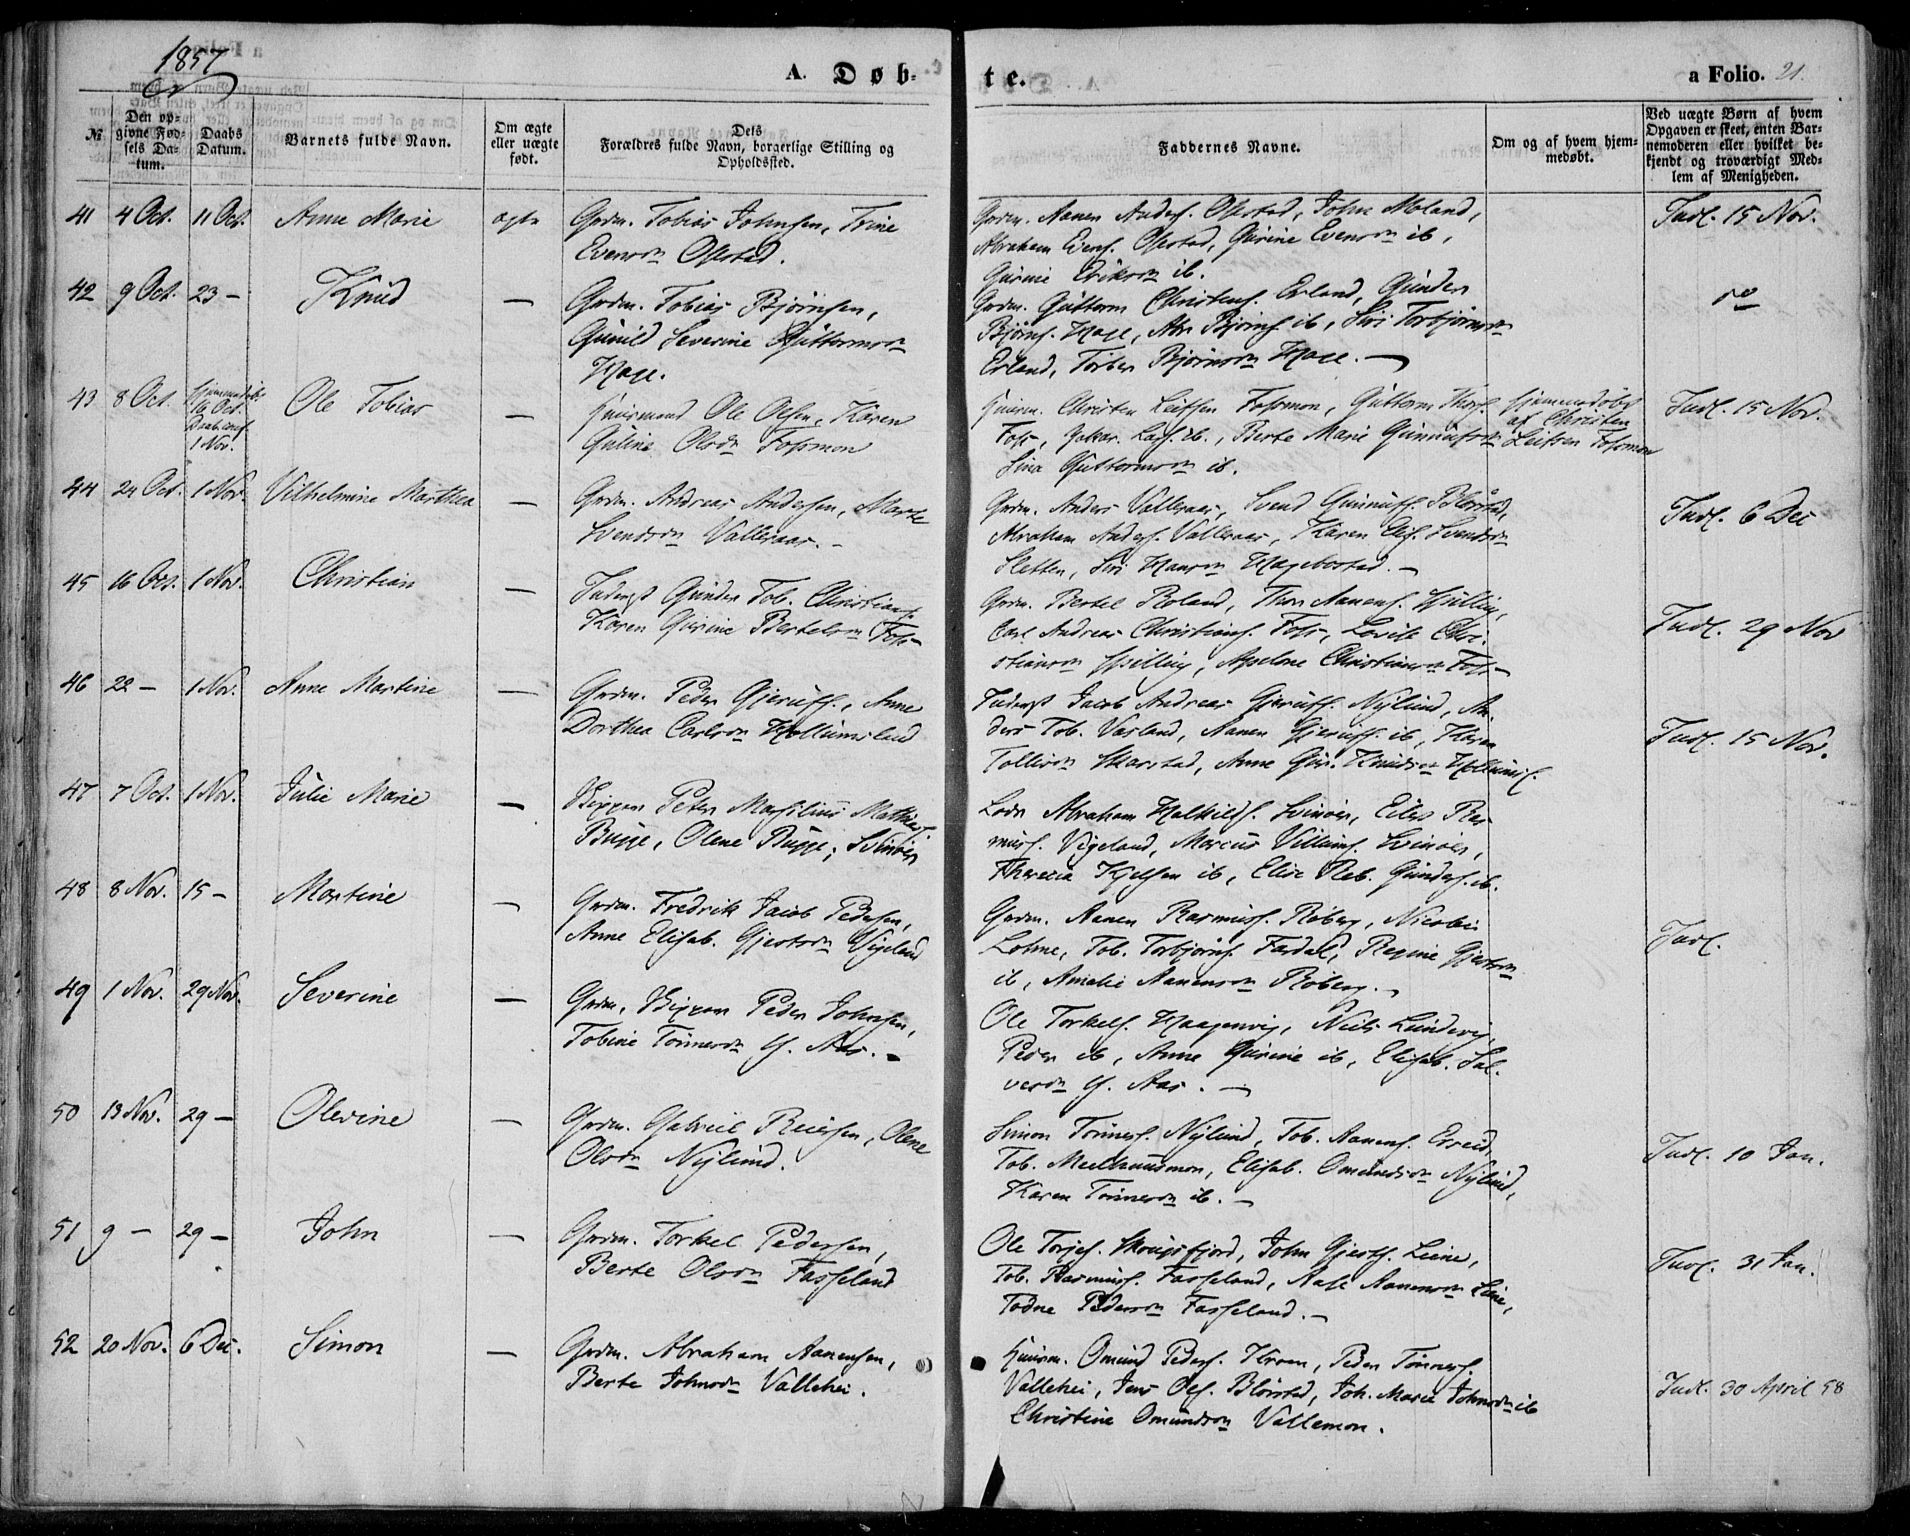 1857
A. Døb- te.
a Folio. 21.
№
Den op-
givne Fød-
sels Da-
tum.
Daabs
Datum.
Barnets fulde Navn.
Om ægte
eller uægte
født.
Dets
Forældres fulde Navn, borgerlige Stilling og
Opholdssted.
Faddernes Navne.
Om og af hvem hjem-
medøbt.
Ved uægte Børn af hvem
Opgaven er skeet, enten Bar-
nemoderen eller hvilket be-
kjendt og troværdigt Med-
lem af Menigheden.
41 4 Oct. 11 Oct. Anne Marie ægte Grdm. Tobias Johnsen, Trine
Evensdn Ofstad.
Grdm. Aanen Anders. Ofstad, John Moland,
Abraham Evens. Ofstad, Gurine Evensdn ib,
Gurine Eriksdn ib.
Indl. 15 Nov.
42 9 Oct. 23 – Knud — Grdm. Tobias Bjørnsen,
Gunild Severine Guttormsdn
Hage.
Grdm. Guttorm Christens. Erland, Gunder
Bjørns. Hage, Abr Bjørns ib, Siri Torbjørnsdn
Erland, Torber Bjørnsdn Hage. —
do
43 8 Oct. Hjemmedøbt
16 Oct.
1 Nov.
Ole Tobias — Huusmand Ole Olsen, Karen
Guline Olsdn Fossmon
Huusm. Christen Leifsen Fossmon, Guttorm Thors.
Foss, Lars. ib., Berte Marie Gunnufsdn
Sina Guttormsdn ib.
Hjemmedøbt
af Christen
Leifsen Fossmon
Indl. 15 Nov.
44 24 Oct. 1 Nov. Vilhelmine Marthea — Grdm. Andreas Andersen, Marte
Svendsdn Valleraas. –
Grdm. Anders Valleraas, Svend Gunnufs. Blørstad,
Abraham Anders. Valleraas, Karen Elis. Svendsdn
Sletten, Siri Hansdn Hagebostad. —
Indl. 6 Dec
45 16 Oct. 1 Nov. Christian — Inderst Gunder Tob. Christians.
Karen Gurine Bertelsdn Foss –
Grdm. Bertel Roland, Thor Aanens. Spilling,
Carl Andreas Christians. Foss, Lovise Chri-
stiansdn Spilling, Asselone Christiansdn Foss –
Indl. 29 Nov
46 22 – 1 Nov. Anne Martine — Grdm. Peder Gjerufs., Anne
Dorthea Carlsdn Hollumsland
Inderst Jacob Andreas Gjerufs. Nylund, An-
ders Tob. Vasland, Aanen Gjerufs ib, Karen
Tollisdn Skarstad, Anne Gur. Knudsdn Hollumsl.
Indl. 15 Nov.
47 7 Oct. 1 Nov. Julie Marie — Skipper Peter Masilius Mathias.
Bugge, Olene Bugge, Svinøer
Lods Abraham Halkilds. Svinøer, Eilert Ras-
mus. Vigeland, Marcus Villums. Svinøer,
Therecia Kjelsen ib, Elise Reb. Gunders. ib.
48 8 Nov. 15 – Martine — Grdm. Fredrik Jacob Pedersen,
Anne Elisab. Gjertsdn Vigeland
Grdm. Aanen Rasmus. Roberg, Nicolai
Lohne, Tob. Torbjørns. Fardal, Regine Gjertsdn
ib, Amalie Aanensdn Roberg. —
Indl.
49 1 Nov. 29 Nov. Severine — Grdm. Skipper Peder Johnsen,
Tobine Tønnesdn Y. Aas. –
Ole Torkels. Haagenvig, Niels Lundevig,
Peder ib, Anne Gurine ib, Elisab. Sal-
vesdn Y. Aas. —
50 13 Nov. 29 – Olevine — Grdm. Gabriel Reiersen, Olene
Olsdn Nylund.
Simon Tønnes. Nylund, Tob. Aanens. Ervid,
Tob. Meelhuusmon, Elisab. Omundsdn Nylund,
Karen Tønnesdn ib. —
Indl. 10 Jan.
51 9 – 29 – John — Grdm. Torkel Pedersen,
Berte Olsdn Fasseland
Ole Torjes. Skougsfjord, John Gjerts. Leine,
Tob. Rasmus. Fasseland, Aase Aanensdn Leine,
Todne Pedersdn Fasseland. —
Indl. 31 Jan.
52 20 Nov. 6 Dec. Simon — Grdm. Abraham Aanensen,
Berte Johnsdn Vallehei.
Huusm. Omund Peders. Kroen, Peder Tønnes.
Vallehei, Jens Ols. Blørstad, Joh. Marie Johnsdn ib
Christine Omundsdn Vallemon.
Indl. 30 April 58